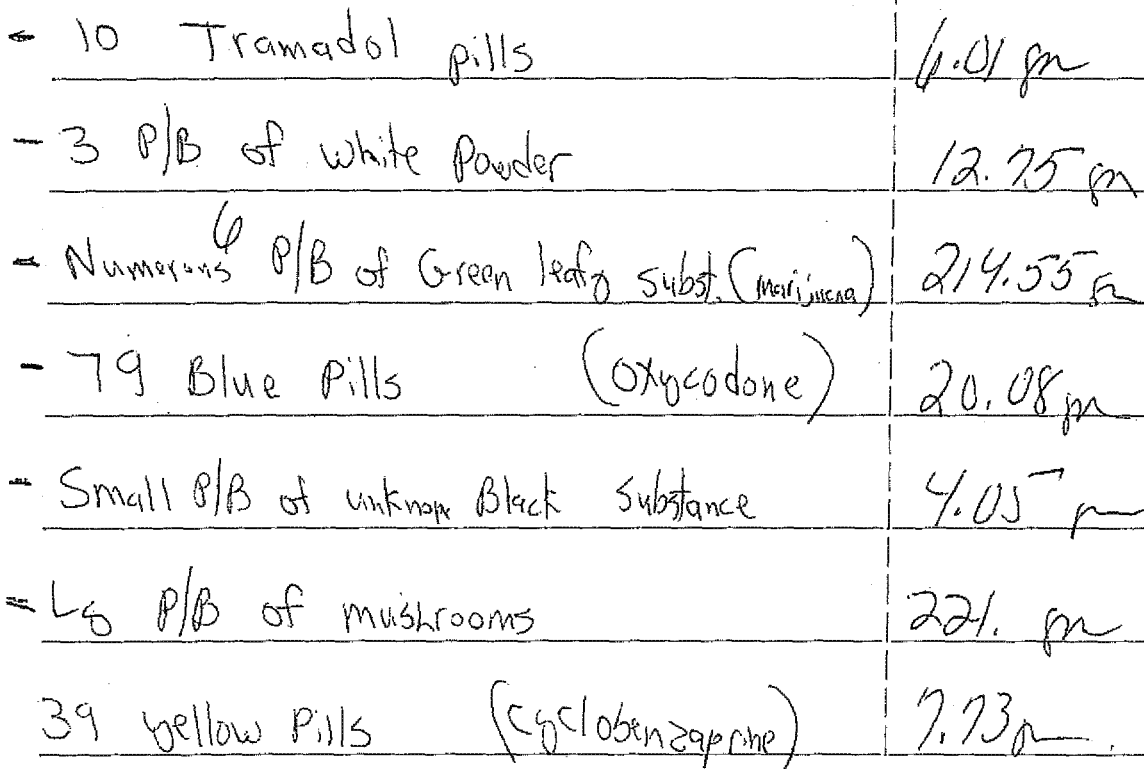 - 10 Tramadol pills 6.01 gm
- 3 P/B of white Powder 12.75 gm
- Numerous 6 P/B of Green leafy subst. (marijuana) 214.55 gm
- 79 Blue Pills (oxycodone) 20.08 gm
- Small P/B of unknown Black substance 4.05 gm
- Lg P/B of mushrooms 221. gm
39 yellow Pills (cyclobenzaprine) 7.73 gm.